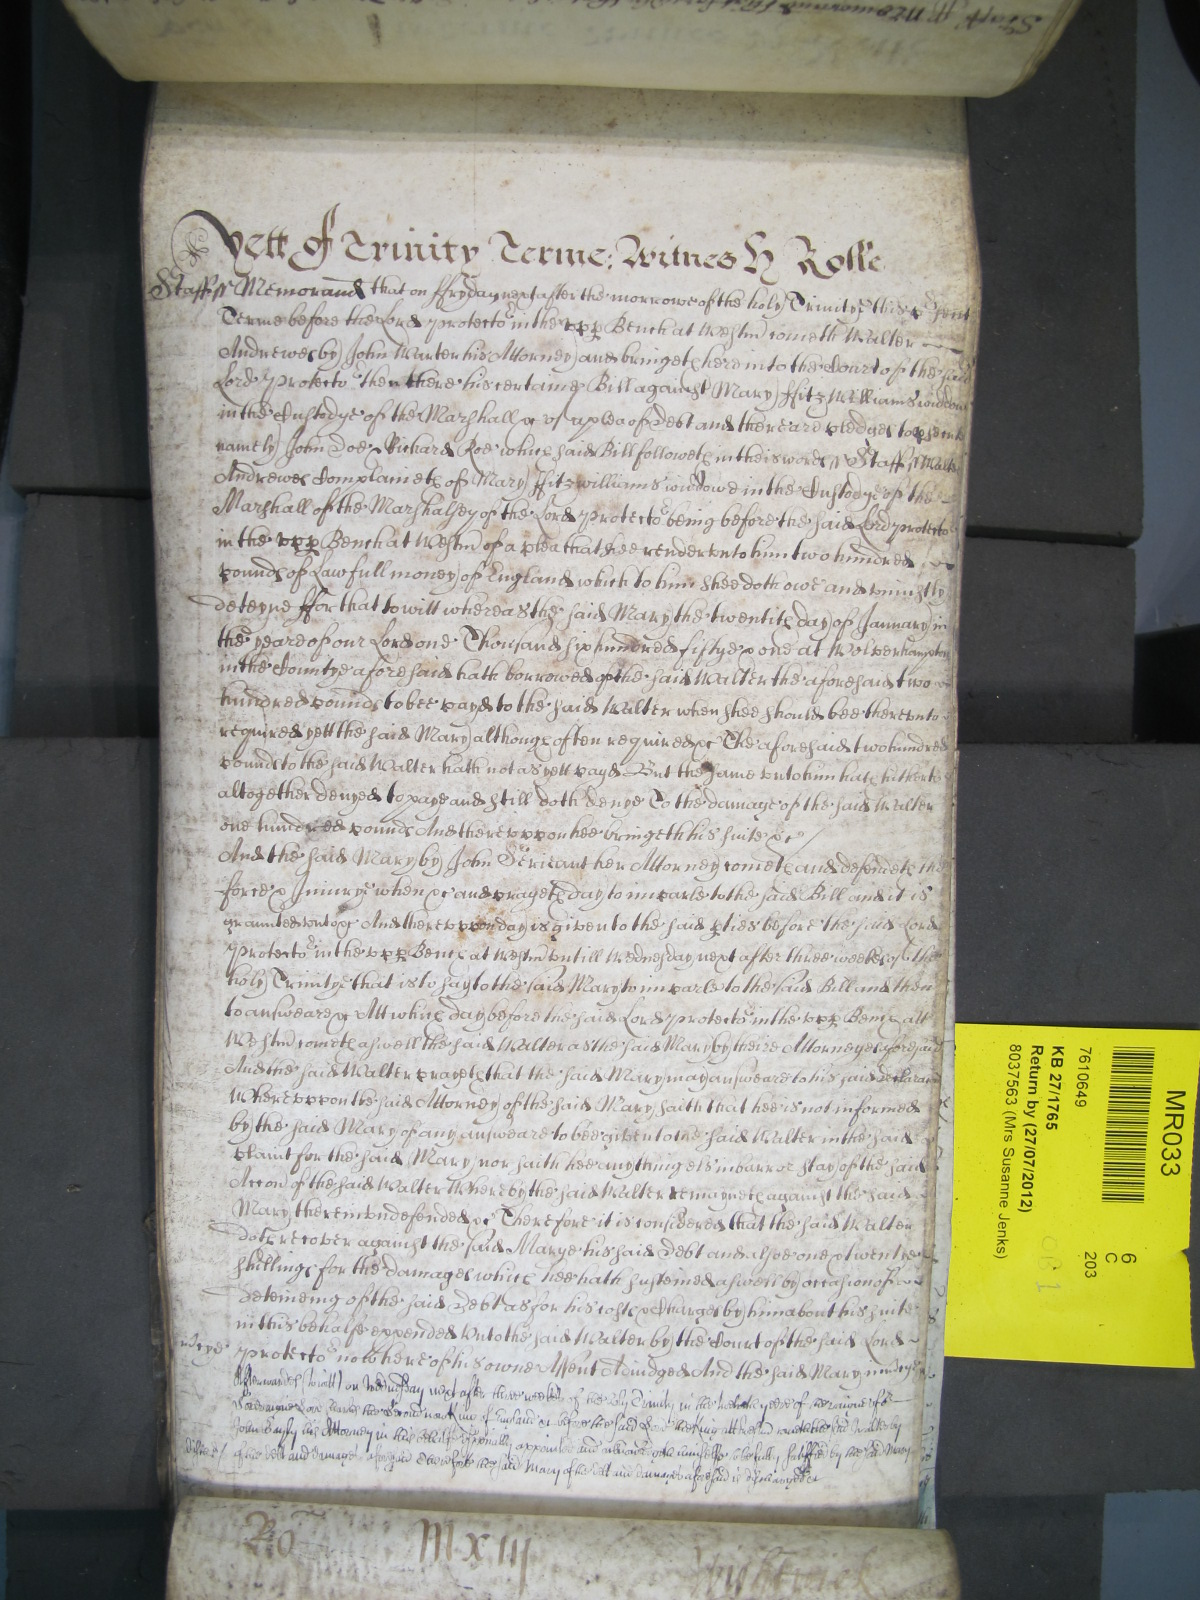 Yett of Trinity Terme: Witnes H Rolle
Staff ss Memorand that on ffryday next after the morrowe of the holy Trinitye this p'sent
Terme before the Lord Protecto' in the upp Bench at Westm' cometh Walter
Andrewes by John Warter his Attorney and bringeth here into the Court of the said
Lord Protecto' then there his certaine Bill against Mary ffitzWilliams widdowe
in the Custodye of the Marshall &c of a plea of Debt and there are pledges to p'secute
namely John Doe & Richard Roe which said Bill followeth in theis words ss Staff ss Walter
Andrewes Complaineth of Mary ffitzwilliams widdowe in the Custodye of the
Marshall of the Marshalsey of the Lord Protecto' being before the said Lord Protecto'
in the upp Bench at Westm' of a plea that shee render unto him two hundred
pounds of Lawfull money of England which to him shee doth owe and uniustly
deteyne ffor that to witt whereas the said Mary the twentith day of January in
the yeare of our Lord one Thousand six hundred fiftye & one at Wolverhampton
in the Countye aforesaid hath borrowed of the said Walter the aforesaid two
hundred pounds to bee payd to the said Walter when shee should bee thereunto
required yett the said Mary although often required &c The aforesaid two hundred
pounds to the said Walter hath not as yett payd But the same unto him hath hitherto
altogether denyed to paye and still doth denye To the damage of the said Walter
one hundred pounds And thereuppon hee bringeth his suite &c
And the said Mary by John Scricant her Attorney cometh and defendeth the
force & Iniurye when &c and prayeth day to imparle to the said Bill and it is
graunted unto &c And thereuppon day is given to the said p'ties before the said Lord
Protecto' in the upp Bench at Westm' untill Wednesday next after three weekes of the
holy Trinitye that is to say to the said Mary to imparle to the said Bill and then
to answeare &c Att which day before the said Lord Protecto' in the upp Bench att
Westm' cometh aswell the said Walter as the said Mary by theire Attorneyes aforesaid
And the said Walter prayeth that the said Mary may answeare to his said Declarac'
Whereuppon the said Attorney of the said Mary saith that hee is not informed
by the said Mary of any answeare to bee given to the said Walter in the said
plaint for the said Mary nor saith hee any thing els in barr or stay of the said
Accon of the said Walter Whereby the said Walter remayneth against the said
Mary therein undefended &c Therefore it is considered that the said Walter
doth recover against the said Marye his said Debt and alsoe one & twentye
shillings for the damages which hee hath susteined aswell by occasion of the
deteineing of the said Debt as for his costs & Charges by him about his suite
in this behalfe expended Unto the said Walter by the Court of the said Lord
m'cye Protecto' now here of his owne Assent Adiudged And the said Mary in mercye
Afterwards (to witt) on Wednesday next after three weekes of the holy Trinity in the yeare of the raigne of
Soveraigne Lord Charles the second now King of England &c before the said Lord the King att cometh the said Walter by
John Bayly his Attorney in this behalfe specially appointed and acknowledgeth himselfe to be fully satisfied by the said Mary
of the debt and damages aforesaid Therefore the said Mary of the debt and damages aforesaid is discharged &c
Ro M X iij
Wightwick
MR033
7610649
6
C
203
KB 27/1765
Return by (27/07/2012)
8037563 (Mrs Susanne Jenks)